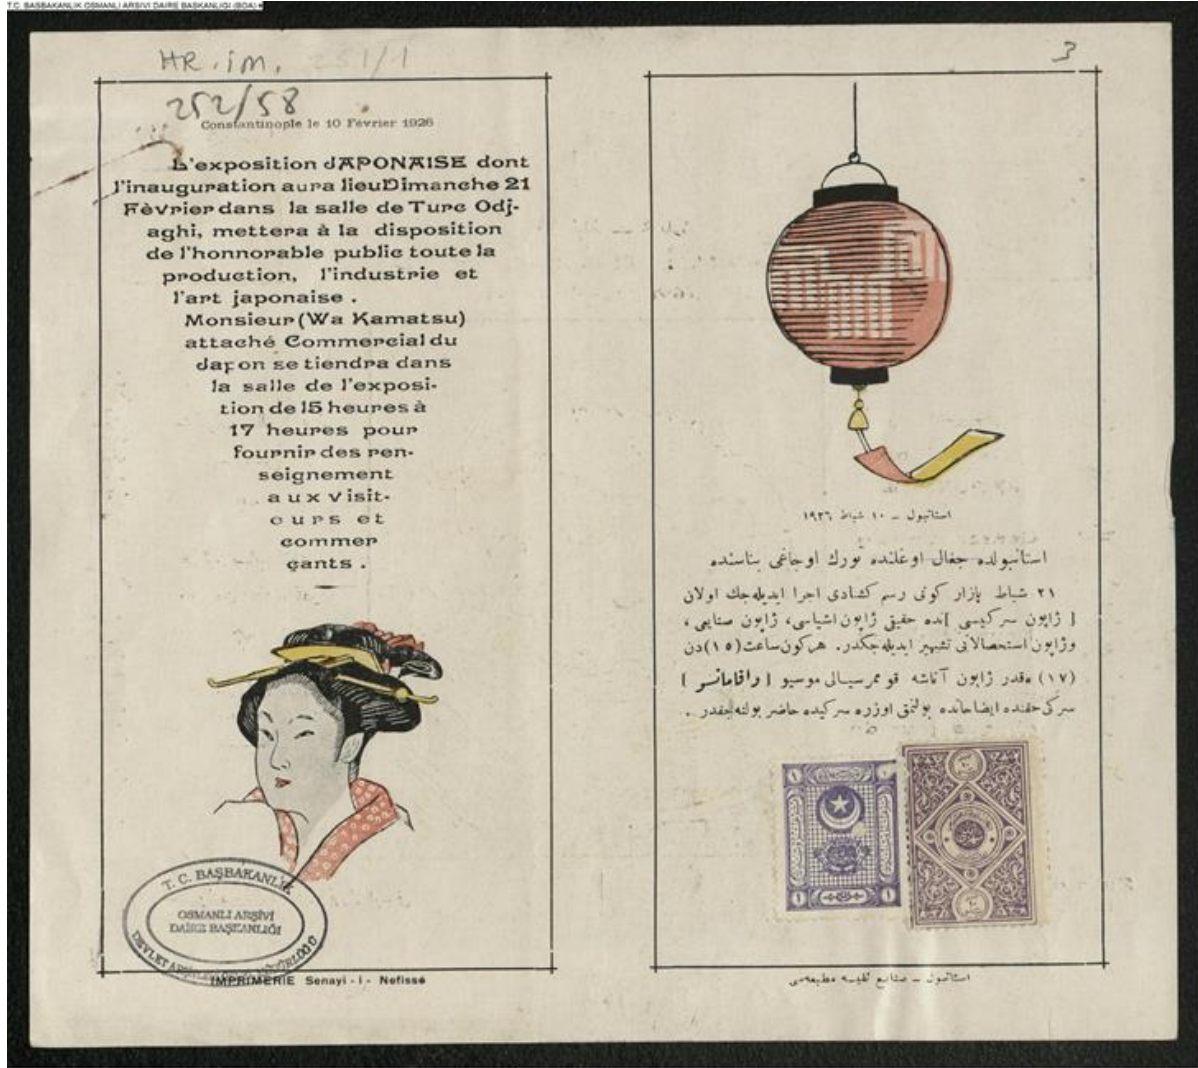 T.C. BASBAKANLIK OSMANLI ARSIVI DAIRE BASKANLIGI (BOA)
HR.im. 251/1
252/58
3
Constantinople le 10 Février 1926
L'exposition JAPONAISE dont
l'inauguration aura lieu Dimanche 21
Fèvrier dans la salle de Turc Odj-
aghi, mettera à la disposition
de l'honnorable public toute la
production, l'industrie et
l'art japonaise .
Monsieur (Wa Kamatsu)
attaché Commercial du
Japon se tiendra dans
la salle de l'exposi-
tion de 15 heures à
17 heures pour
fournir des ren-
seignement
aux visit-
eurs et
commer
çants .
T. C. BAŞBAKANLIK
OSMANLI ARŞİVİ
DAİRE BAŞKANLIĞI
DEVLET
IMPRIMERIE Senayi - i - Nefissé
استانبول ـ ١٠ شباط ١٩٢٦
استانبولده جغال اوغلنده تورك اوجاغی بناسنده
٢١ شباط پازار كونی رسم كشادی اجرا ایدیله‌جك اولان
[ ژاپون سركیسی ]نده حقیقی ژاپون اشیاسی، ژاپون صنایعی ،
وژاپون استحصالاتی تشهیر ایدیله‌جكدر. هركون ساعت (١٥) دن
(١٧) ه‌قدر ژاپون آتاشه قوممرسیالی موسیو [ واقاماتسو ]
سركی حقنده ایضاحاتده بولنمق اوزره سركیده حاضر بولنه‌جقدر .
استانبول ـ صنایع نفیسه مطبعه‌سی